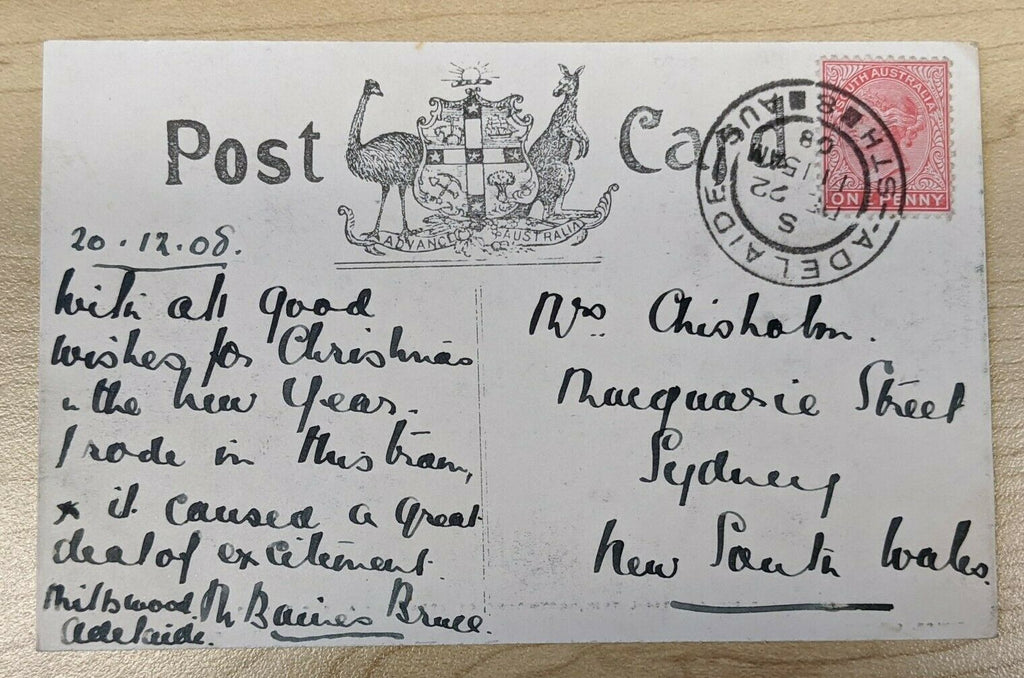 Post Card
ADVANCE AUSTRALIA
SOUTH AUSTRALIA
ONE PENNY
STH-ADELAIDE AUS
8
11 15 AM
22
08
S
20.12.08.
With all good
wishes for Christmas
& the New Year.
I rode in this tram,
& it caused a great
deal of excitement.
Millswood M Baines Bruce.
Adelaide.
Mrs. Chisholm.
Macquarie Street
Sydney
New South Wales.